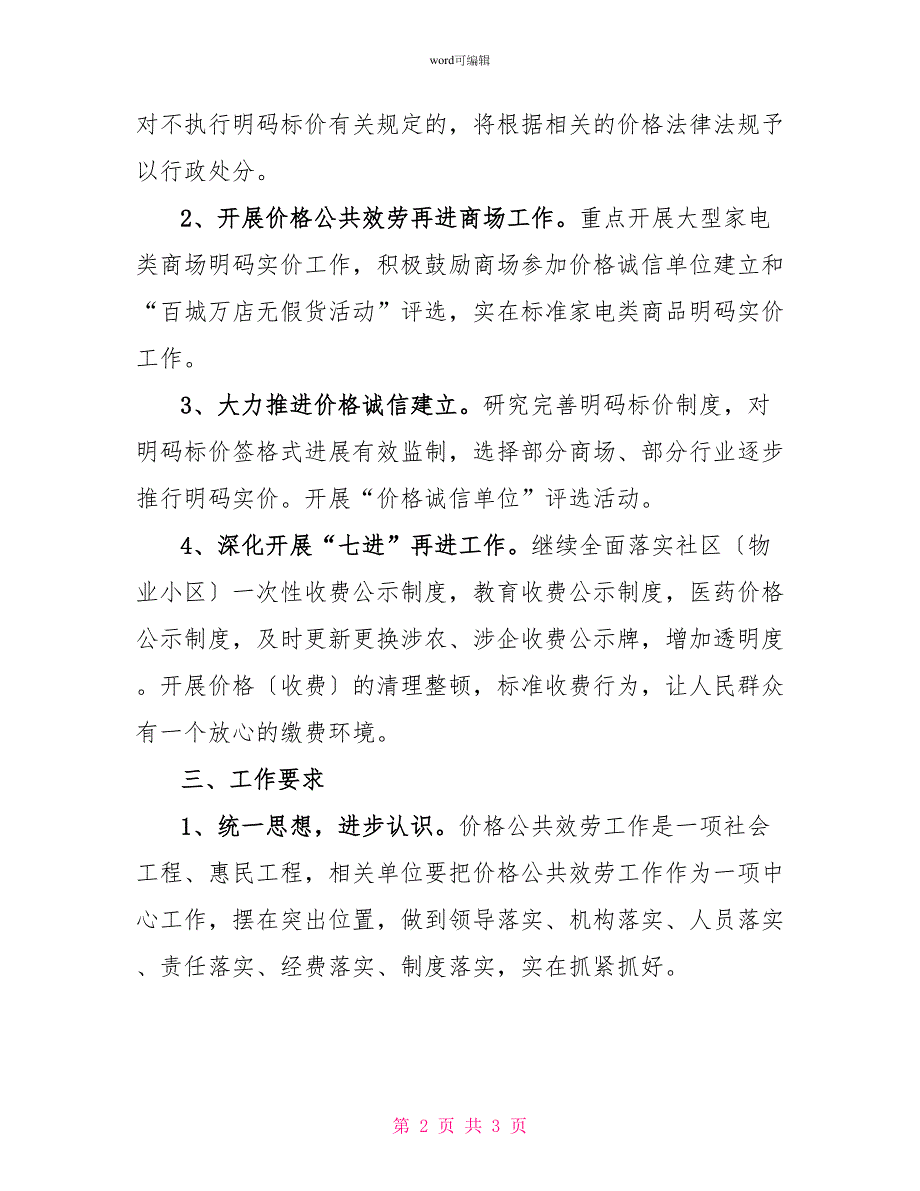 word可编辑
对不执行明码标价有关规定的，将根据相关的价格法律法规予
以行政处分。
2、开展价格公共效劳再进商场工作。重点开展大型家电
类商场明码实价工作，积极鼓励商场参加价格诚信单位建立和
“百城万店无假货活动”评选，实在标准家电类商品明码实价
工作。
3、大力推进价格诚信建立。研究完善明码标价制度，对
明码标价签格式进展有效监制，选择部分商场、部分行业逐步
推行明码实价。开展“价格诚信单位”评选活动。
4、深化开展“七进”再进工作。继续全面落实社区〔物
业小区〕一次性收费公示制度，教育收费公示制度，医药价格
公示制度，及时更新更换涉农、涉企收费公示牌，增加透明度
。开展价格〔收费〕的清理整顿，标准收费行为，让人民群众
有一个放心的缴费环境。
三、工作要求
1、统一思想，进步认识。价格公共效劳工作是一项社会
工程、惠民工程，相关单位要把价格公共效劳工作作为一项中
心工作，摆在突出位置，做到领导落实、机构落实、人员落实
、责任落实、经费落实、制度落实，实在抓紧抓好。
第 2 页 共 3 页